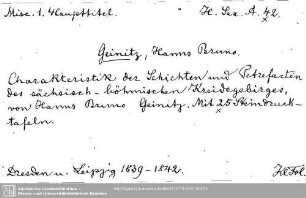 Misc. 1. Haupttitel. H. Sax. A. 42.
Geinitz, Hanns Bruno.
Charakteristik der Schichten und Petrefacten
des sächsisch-böhmischen Kreidegebirges,
von Hanns Bruno Geinitz. Mit 25 Steindruck-
tafeln.
Dresden u. Leipzig 1839-1842.
Sächsische Landesbibliothek -
Staats- und Universitätsbibliothek Dresden